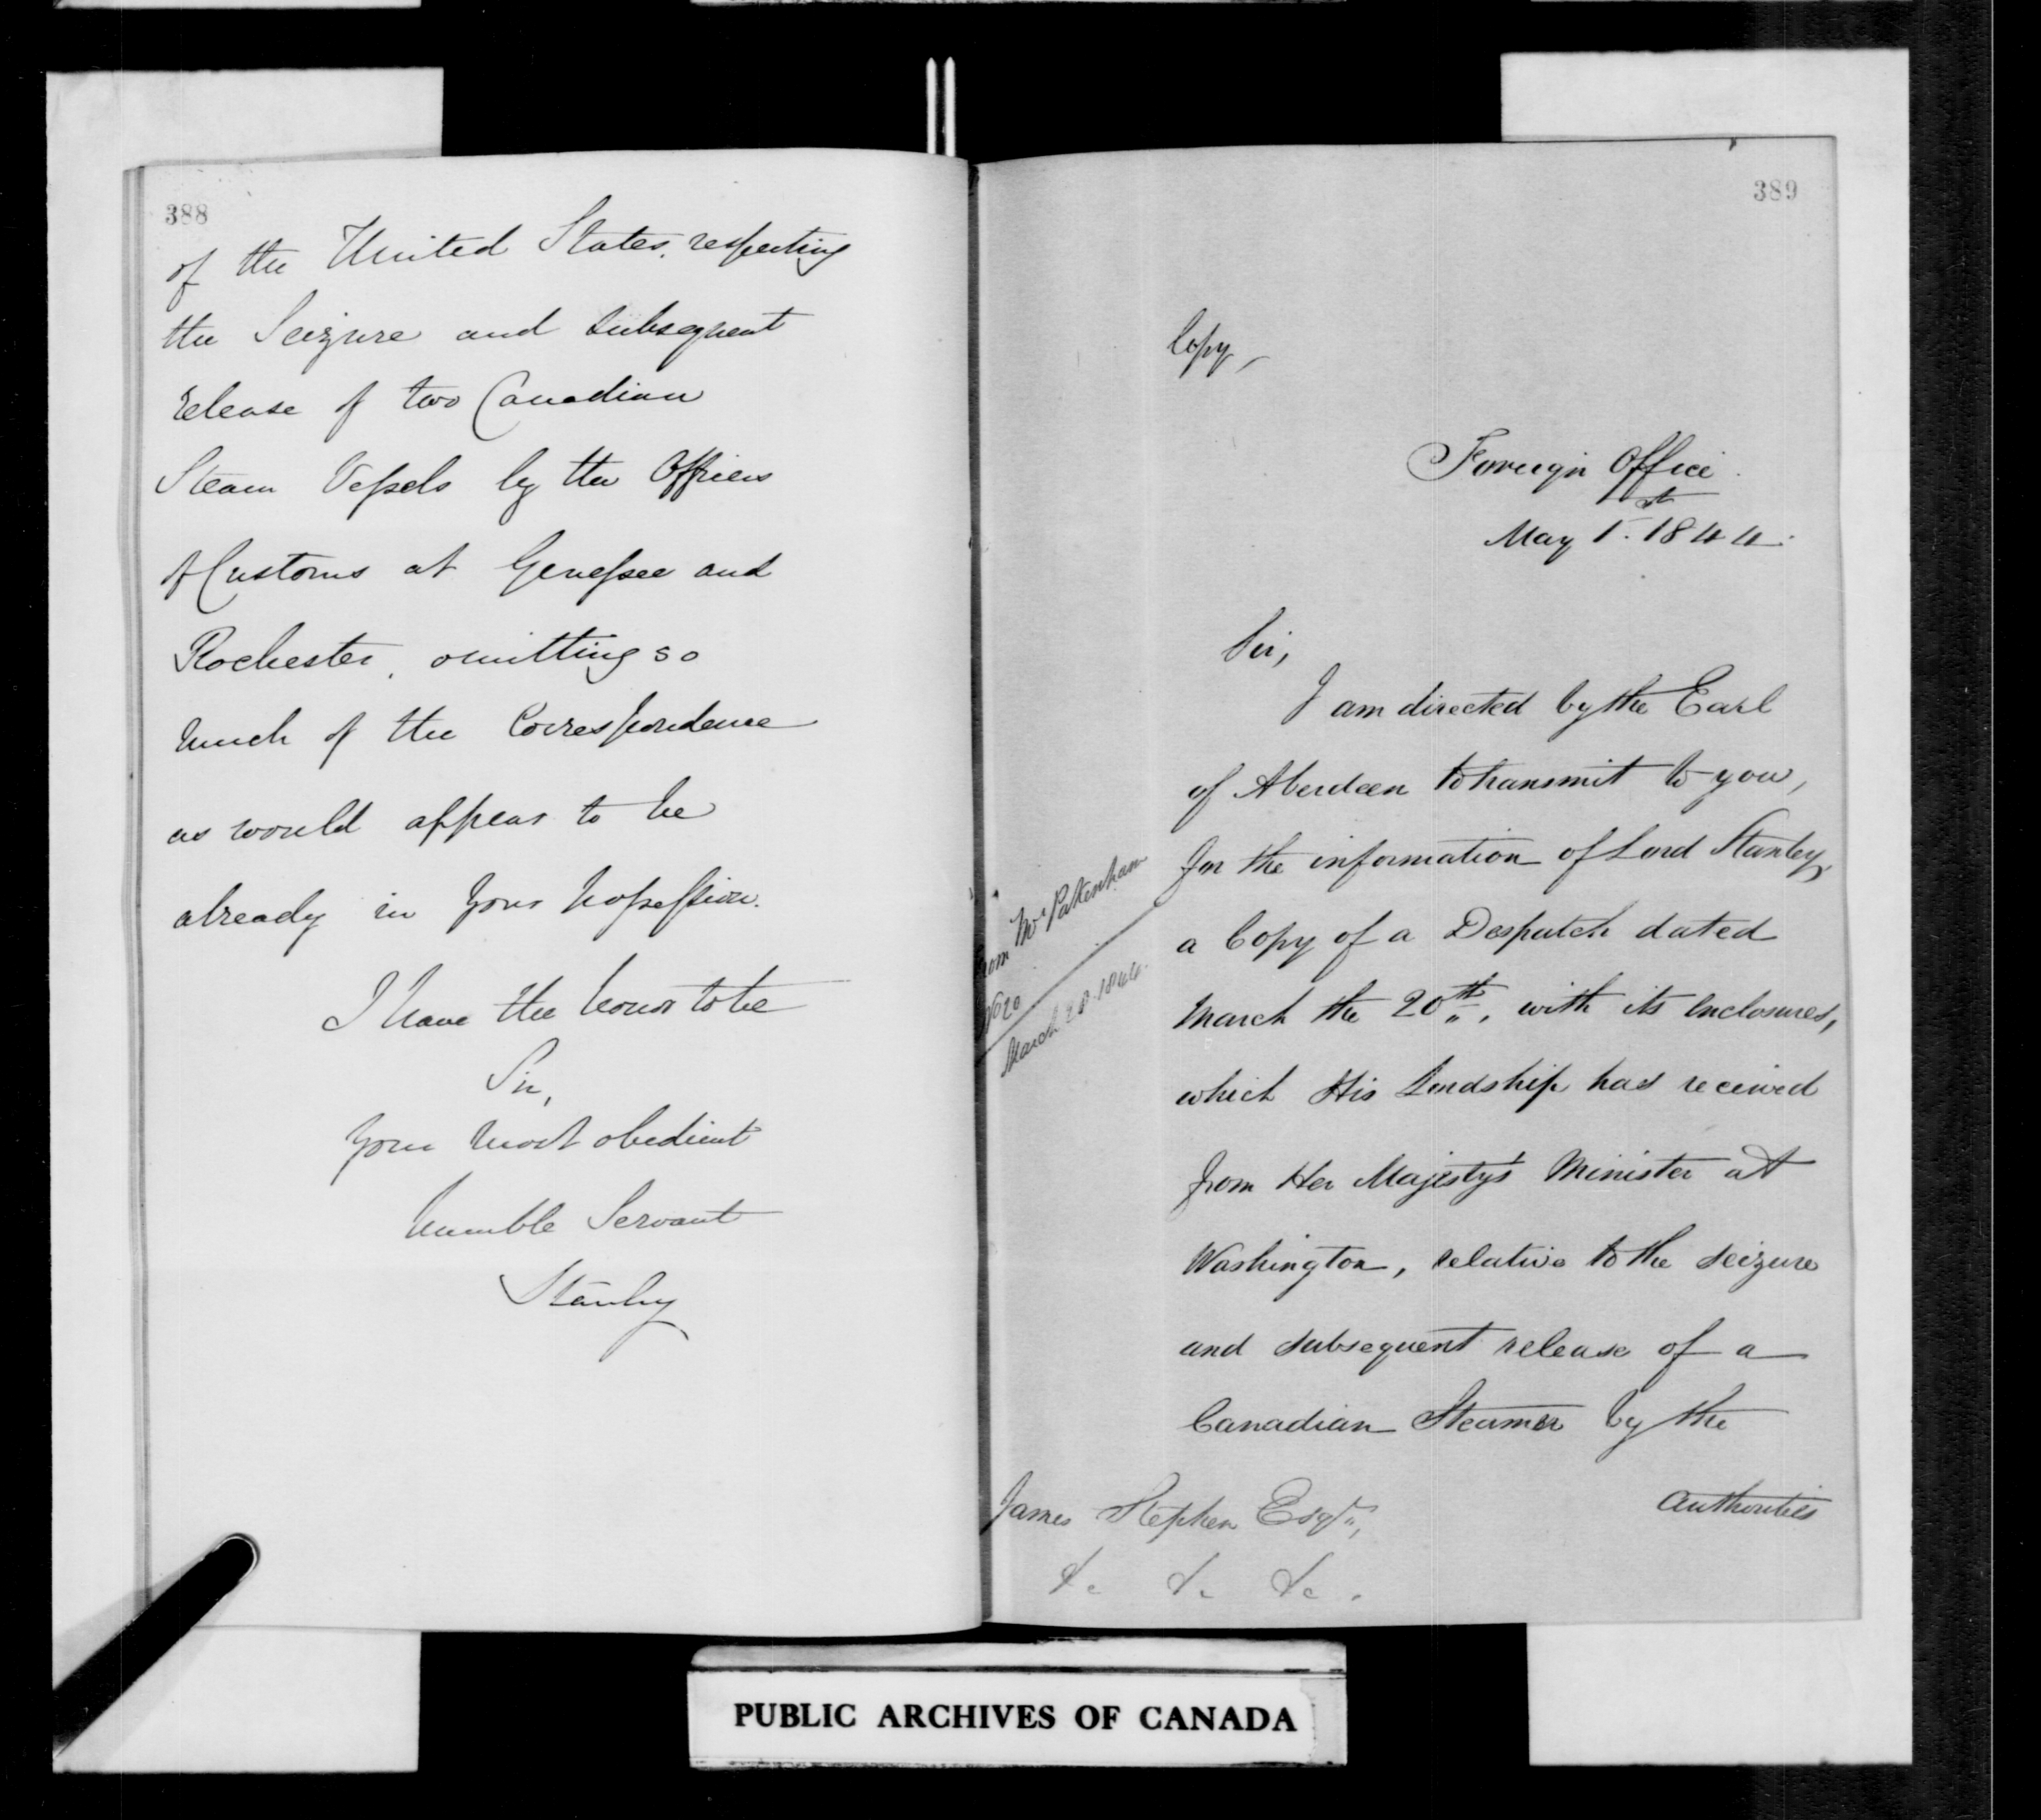 388
of the United States, respecting
the Seizure and subsequent
release of two Canadian
Steam Vessels by the Officers
of Customs at Genessee and
Rochester, omitting so
much of the Correspondence
as would appear to be
already in your possession.
I have the honor to be
Sir,
Your most obedient
humble Servant
Stanley
389
Copy,
Foreign Office
May 1st 1844.
Sir,
I am directed by the Earl
of Aberdeen to transmit to you,
for the information of Lord Stanley,
a Copy of a Despatch dated
March the 20th, with its enclosures,
which His Lordship has received
from Her Majesty's Minister at
Washington, relative to the seizure
and subsequent release of a
Canadian Steamer by the
Authorities
from Mr Pakenham
No 20
March 28. 1844.
James Stephen Esqre,
&c &c &c.
PUBLIC ARCHIVES OF CANADA